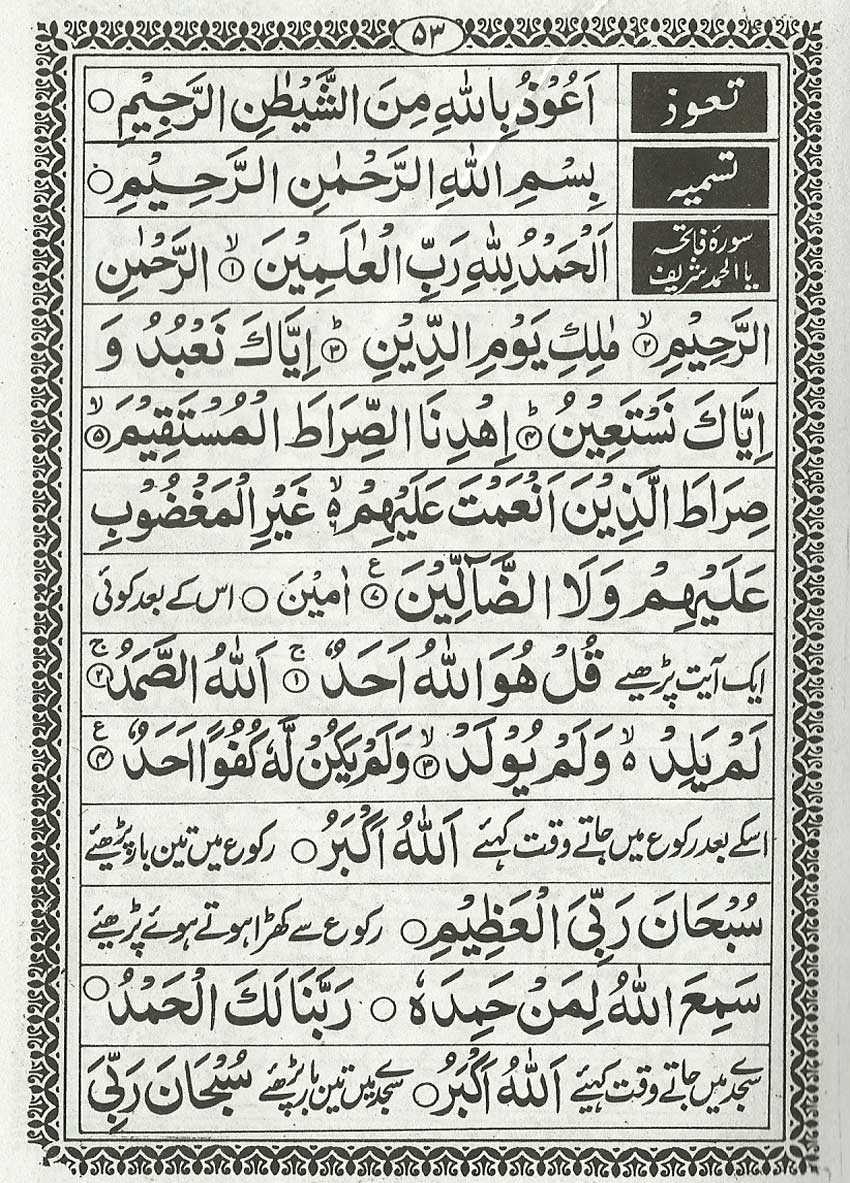 ۵۳
تعوذ اَعُوْذُ بِاللّٰهِ مِنَ الشَّيْطٰنِ الرَّجِيْمِ ○
تسمیہ بِسْمِ اللّٰهِ الرَّحْمٰنِ الرَّحِيْمِ ○
سورۂ فاتحہ یا الحمد شریف اَلْحَمْدُ لِلّٰهِ رَبِّ الْعٰلَمِيْنَ ۙ﴿۱﴾ الرَّحْمٰنِ
الرَّحِيْمِ ۙ﴿۲﴾ مٰلِكِ يَوْمِ الدِّيْنِ ؕ﴿۳﴾ اِيَّاكَ نَعْبُدُ وَ
اِيَّاكَ نَسْتَعِيْنُ ؕ﴿۴﴾ اِهْدِنَا الصِّرَاطَ الْمُسْتَقِيْمَ ۙ﴿۵﴾
صِرَاطَ الَّذِيْنَ اَنْعَمْتَ عَلَيْهِمْ ۙ۬ غَيْرِ الْمَغْضُوْبِ
عَلَيْهِمْ وَلَا الضَّآلِّيْنَ ﴿۷﴾ع اٰمِيْنَ ○ اس کے بعد کوئی
ایک آیت پڑھیے قُلْ هُوَ اللّٰهُ اَحَدٌ ۚ﴿۱﴾ اَللّٰهُ الصَّمَدُ ۚ﴿۲﴾
لَمْ يَلِدْ ۙ۬ وَلَمْ يُوْلَدْ ۙ﴿۳﴾ وَلَمْ يَكُنْ لَّهٗ كُفُوًا اَحَدٌ ﴿۴﴾ع
اسکے بعد رکوع میں جاتے وقت کہئے اَللّٰهُ اَكْبَرُ ○ رکوع میں تین بار پڑھیئے
سُبْحَانَ رَبِّيَ الْعَظِيْمِ ○ رکوع سے کھڑا ہوتے ہوئے پڑھیئے
سَمِعَ اللّٰهُ لِمَنْ حَمِدَهٗ ○ رَبَّنَا لَكَ الْحَمْدُ ○
سجدے میں جاتے وقت کہیئے اَللّٰهُ اَكْبَرُ ○ سجدے میں تین بار پڑھیئے سُبْحَانَ رَبِّيَ